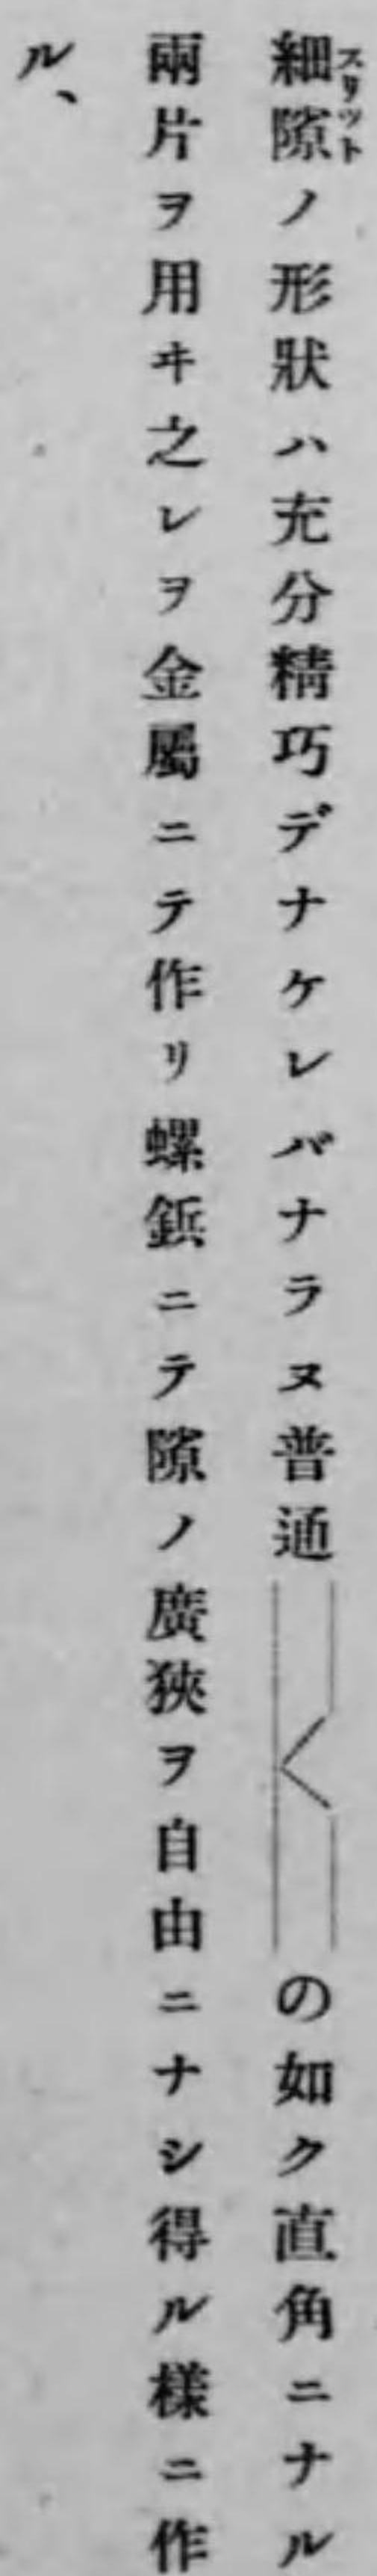 細隙ノ形狀ハ充分精巧デナケレバナラヌ普通の如ク直角ニナル
スリット
兩片ヲ用ヰ之レヲ金屬ニテ作リ螺鋲ニテ隙ノ廣狹ヲ自由ニナシ得ル樣ニ作
ル、